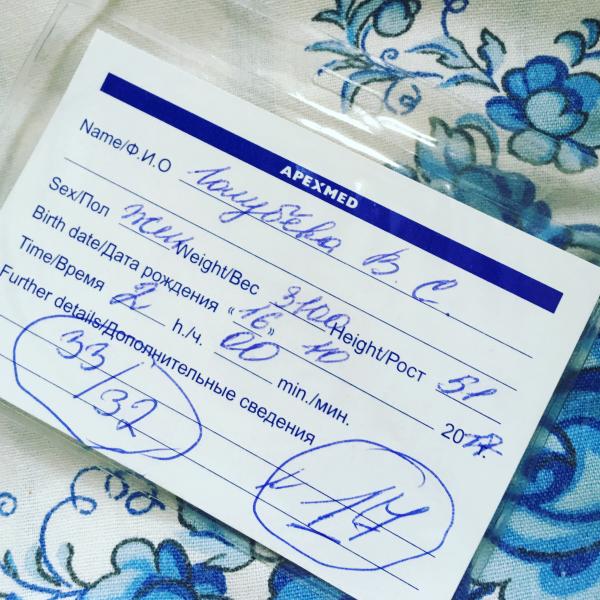 APEXMED
Name/Ф.И.О Голубева В. С.
Sex/Пол жен Weight/Вес 3100 Height/Рост 51
Birth date/Дата рождения « 16 » 10 2017г.
Time/Время 2 h./ч. 00 min./мин.
Further details/Дополнительные сведения
33/32
17